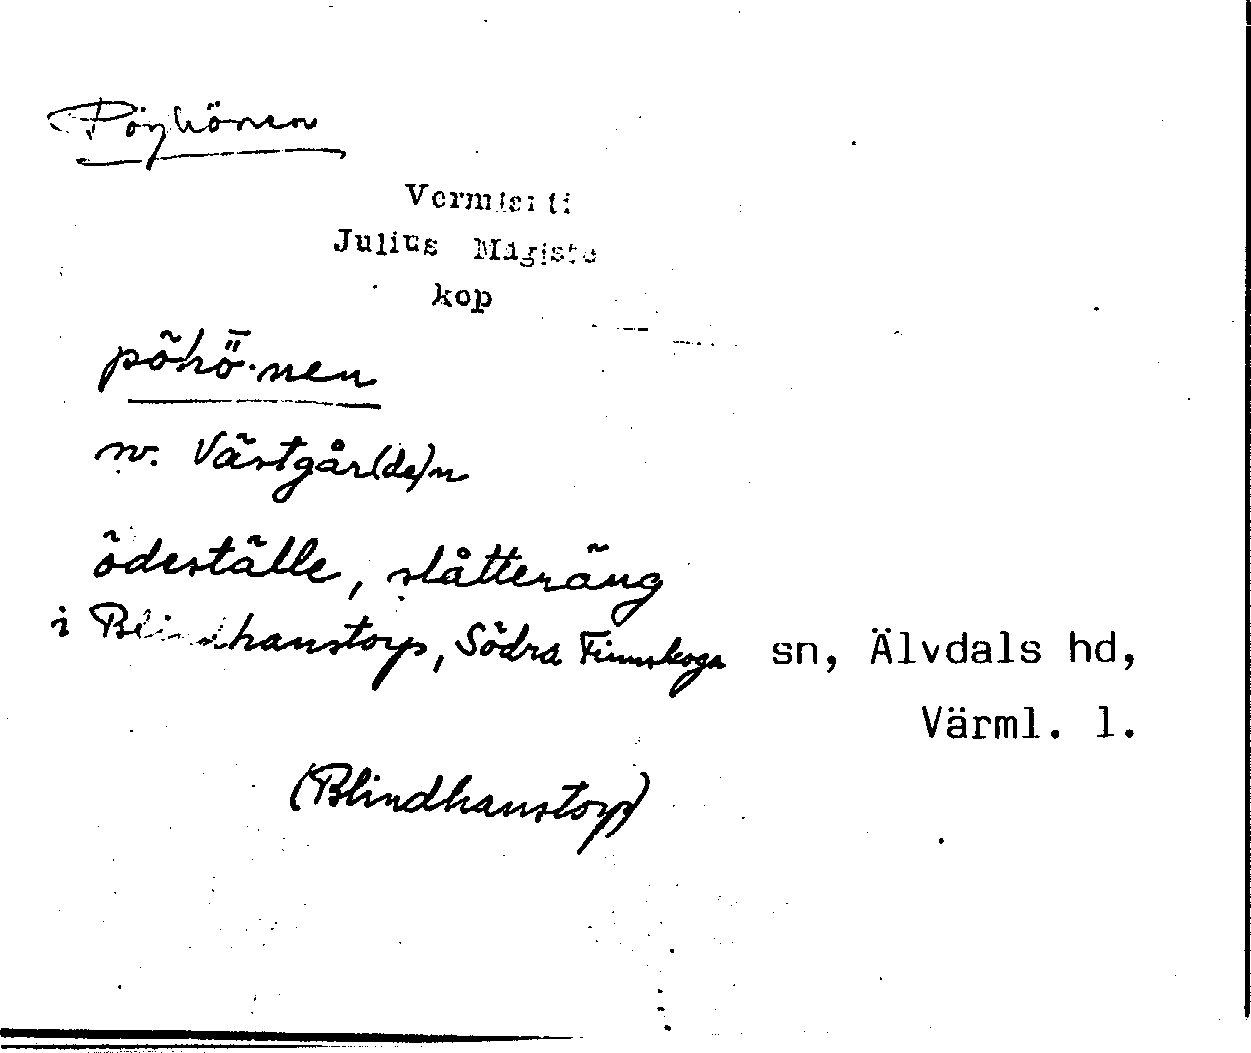 Pöyhönen
Vermlanti
Julius Mägiste
kop
pöhȫ·nen
n. Västgår(de)n
ödeställe, slåtteräng
i Blindhanstorp, Södra Finnskoga sn, Älvdals hd,
Värml. l.
(Blindhanstorp)